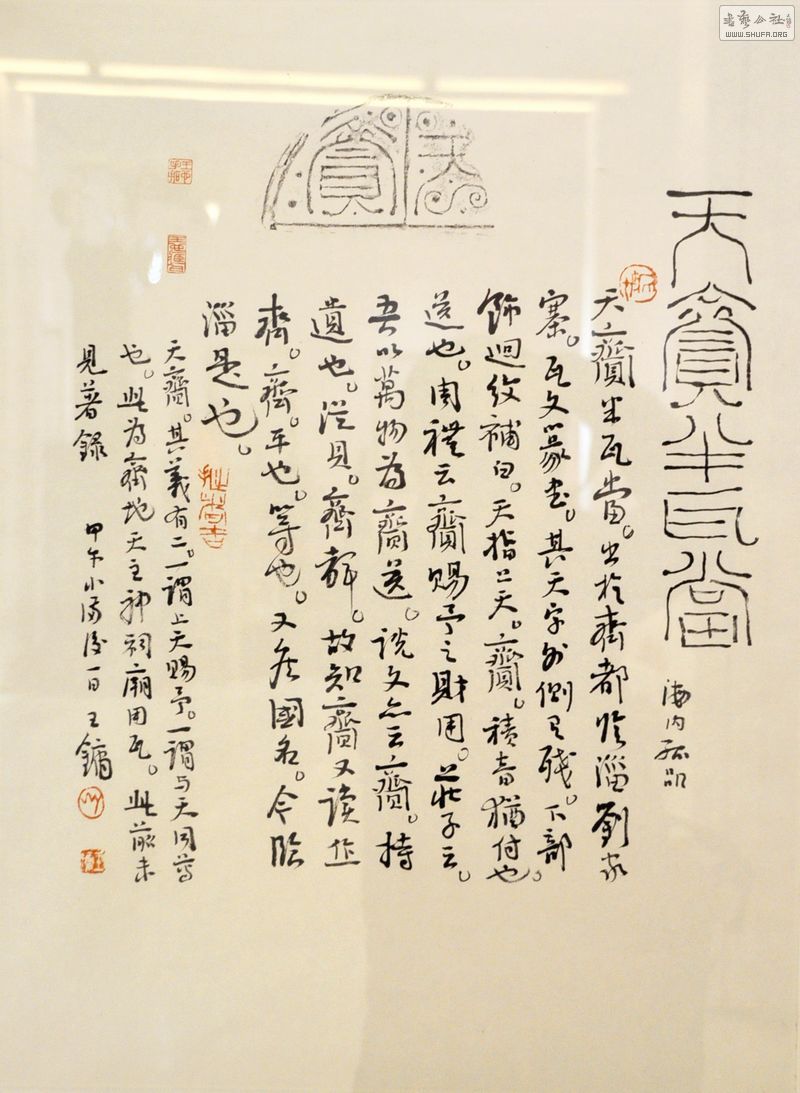 天齎半瓦當
海内孤品
天齎半瓦當。出於齊都臨淄劉家
寨。瓦文篆書。其天字外側已殘。下部
飾迴紋補白。天指上天。齎。積音猶付也。
送也。周禮云齎賜予之財用。莊子云。
吾以萬物為齎送。說文亦云齎。持
遺也。從貝。齊聲。故知齎又讀作
齊。齊。平也。等也。又為國名。今臨
淄是也。
天齎。其義有二。一謂上天賜予。一謂与天同等
也。此為齊地天主神祠廟用瓦。此前未
見著錄
甲午小滿後一日王鏞
天齎
WWW.SHUFA.ORG